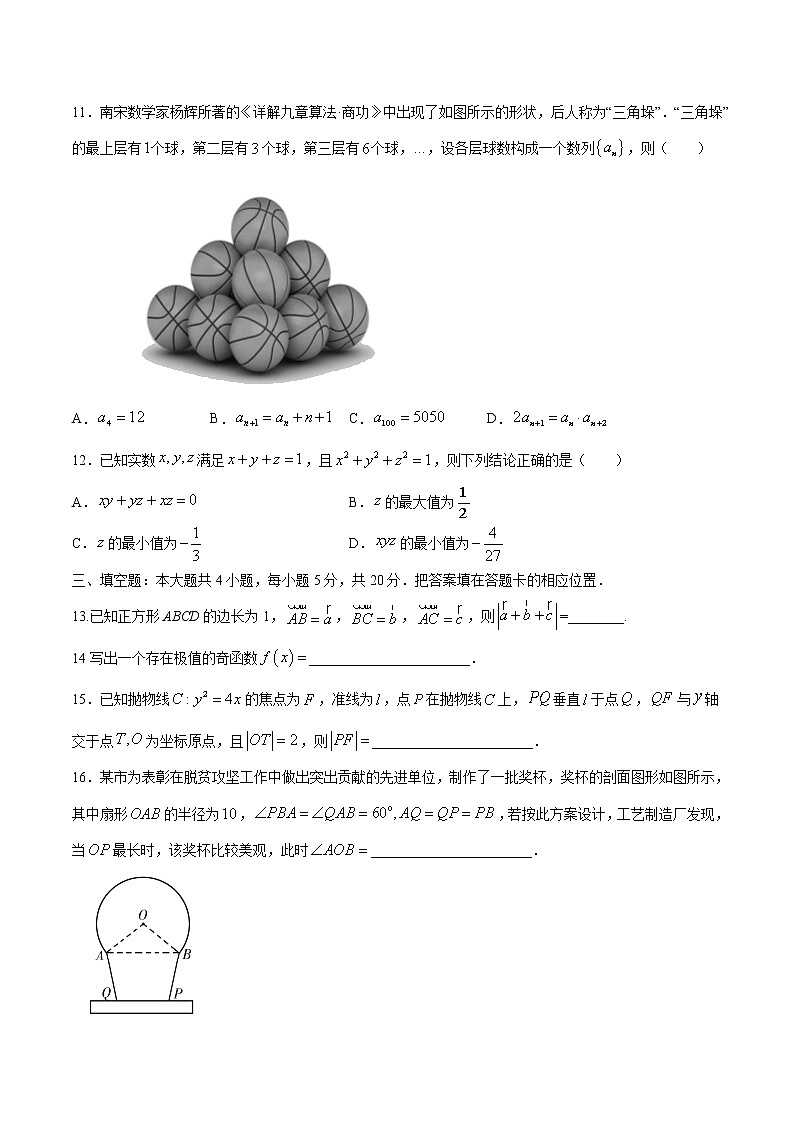 11．南宋数学家杨辉所著的《详解九章算法·商功》中出现了如图所示的形状，后人称为“三角垛”．“三角垛”
的最上层有1个球，第二层有3个球，第三层有6个球，…，设各层球数构成一个数列{aₙ}，则（　　）
A．a₄ = 12　B．aₙ₊₁ = aₙ + n + 1　C．a₁₀₀ = 5050　D．2aₙ₊₁ = aₙ · aₙ₊₂
12．已知实数 x, y, z 满足 x + y + z = 1，且 x² + y² + z² = 1，则下列结论正确的是（　　）
A．xy + yz + xz = 0　B．z 的最大值为 1/2
C．z 的最小值为 −1/3　D．xyz 的最小值为 −4/27
三、填空题：本大题共 4 小题，每小题 5 分，共 20 分．把答案填在答题卡的相应位置．
13.已知正方形 ABCD 的边长为 1，AB = a，BC = b，AC = c，则 |a + b + c| =________.
14 写出一个存在极值的奇函数 f (x) = ______________________．
15．已知抛物线 C : y² = 4x 的焦点为 F，准线为 l，点 P 在抛物线 C 上，PQ 垂直 l 于点 Q，QF 与 y 轴
交于点 T, O 为坐标原点，且 |OT| = 2，则 |PF| = ______________________．
16．某市为表彰在脱贫攻坚工作中做出突出贡献的先进单位，制作了一批奖杯，奖杯的剖面图形如图所示，
其中扇形 OAB 的半径为 10，∠PBA = ∠QAB = 60°, AQ = QP = PB，若按此方案设计，工艺制造厂发现，
当 OP 最长时，该奖杯比较美观，此时 ∠AOB = ______________________．
O
A B
Q P